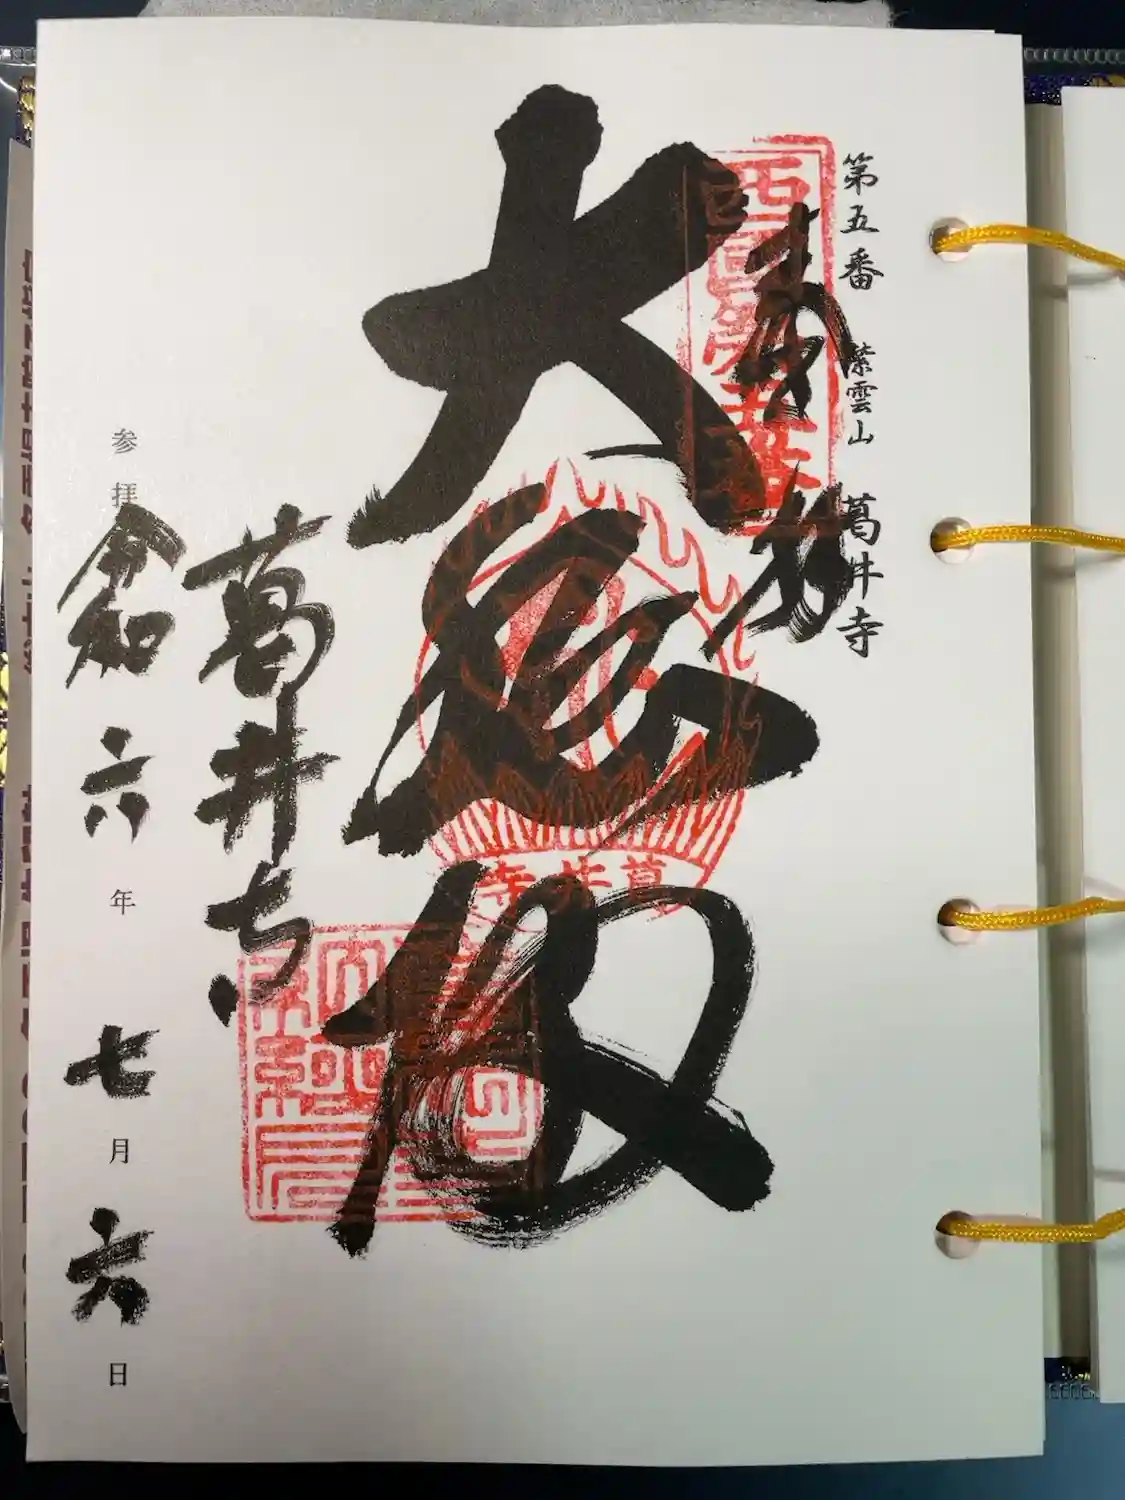 第五番 紫雲山 葛井寺
奉拝
西国第五番
大悲殿
葛井寺
葛井寺
参拝 令和六年七月六日